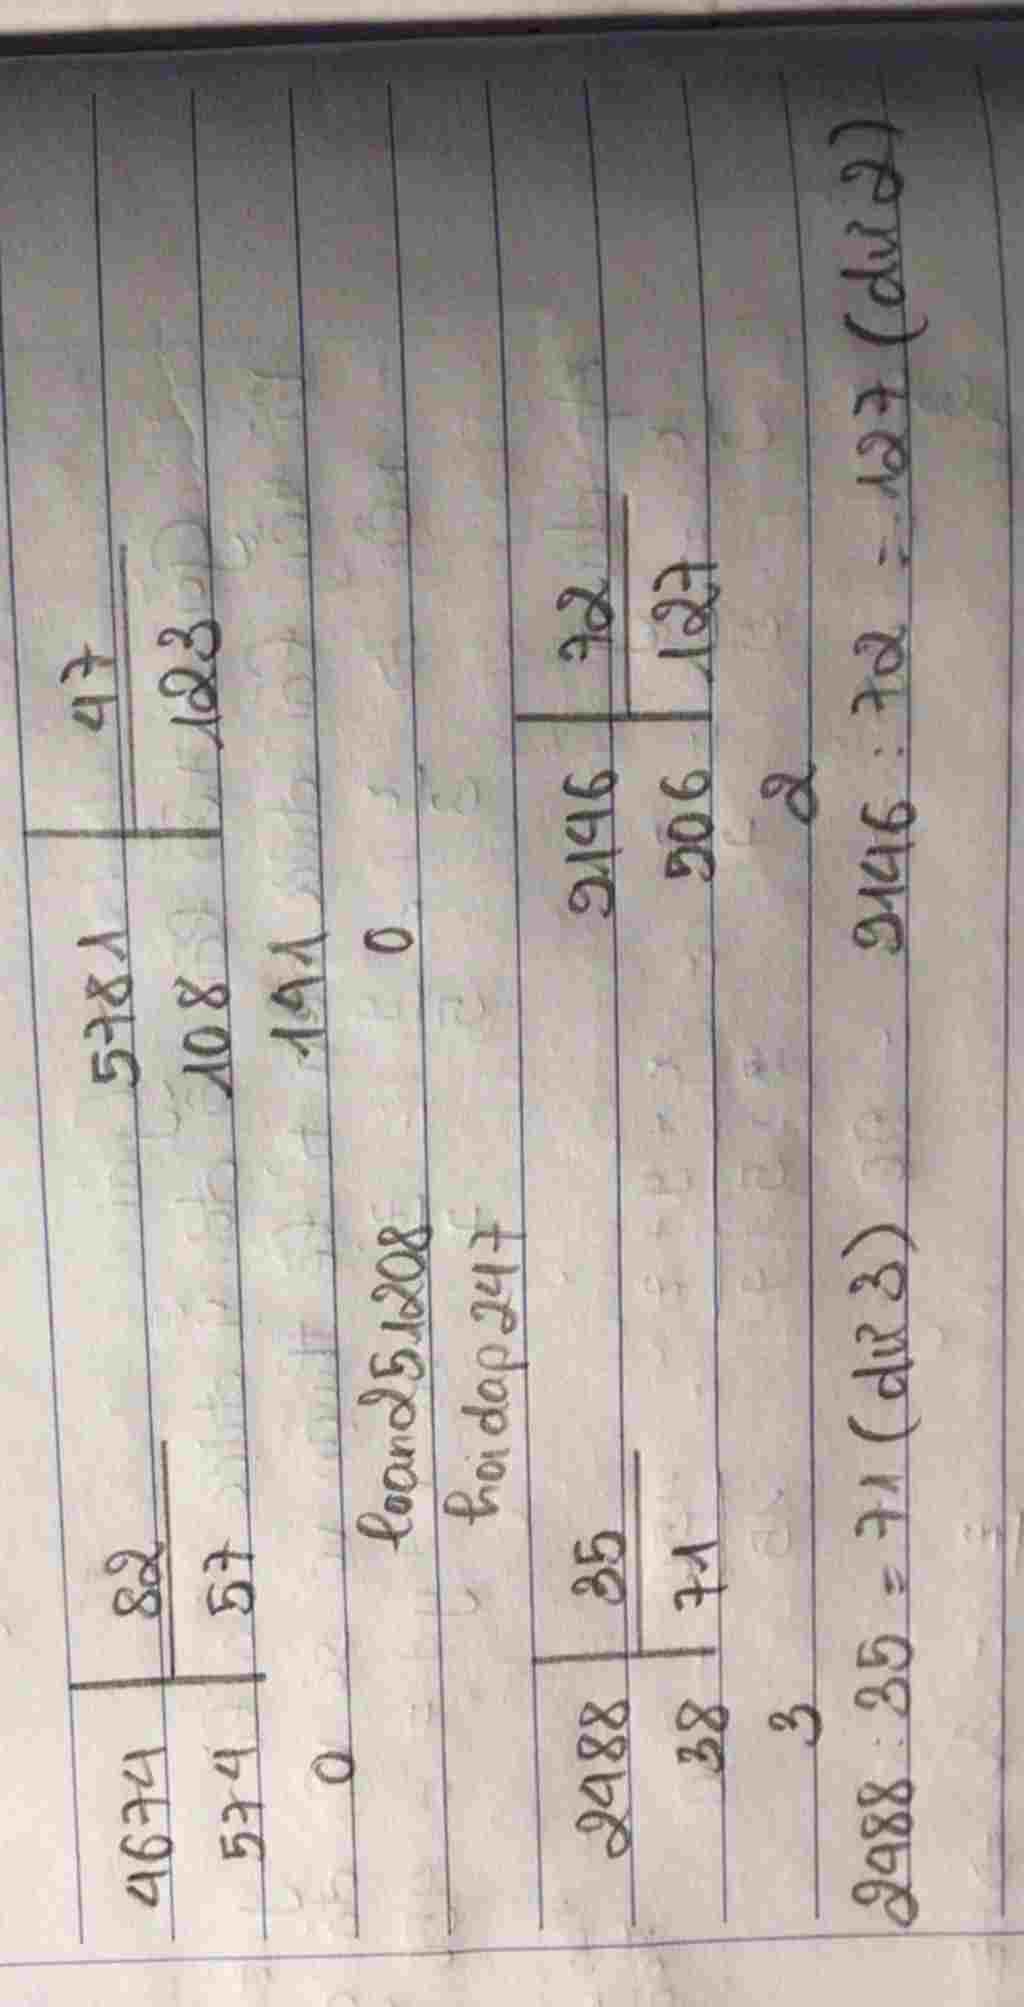 4674 82 5781 47
574 57 108 123
0 141
loan251208 0
hoidap247
2488 35 9146 72
38 71 906 127
3 2
2488 : 35 = 71 (dư 3) 9146 : 72 = 127 (dư 2)